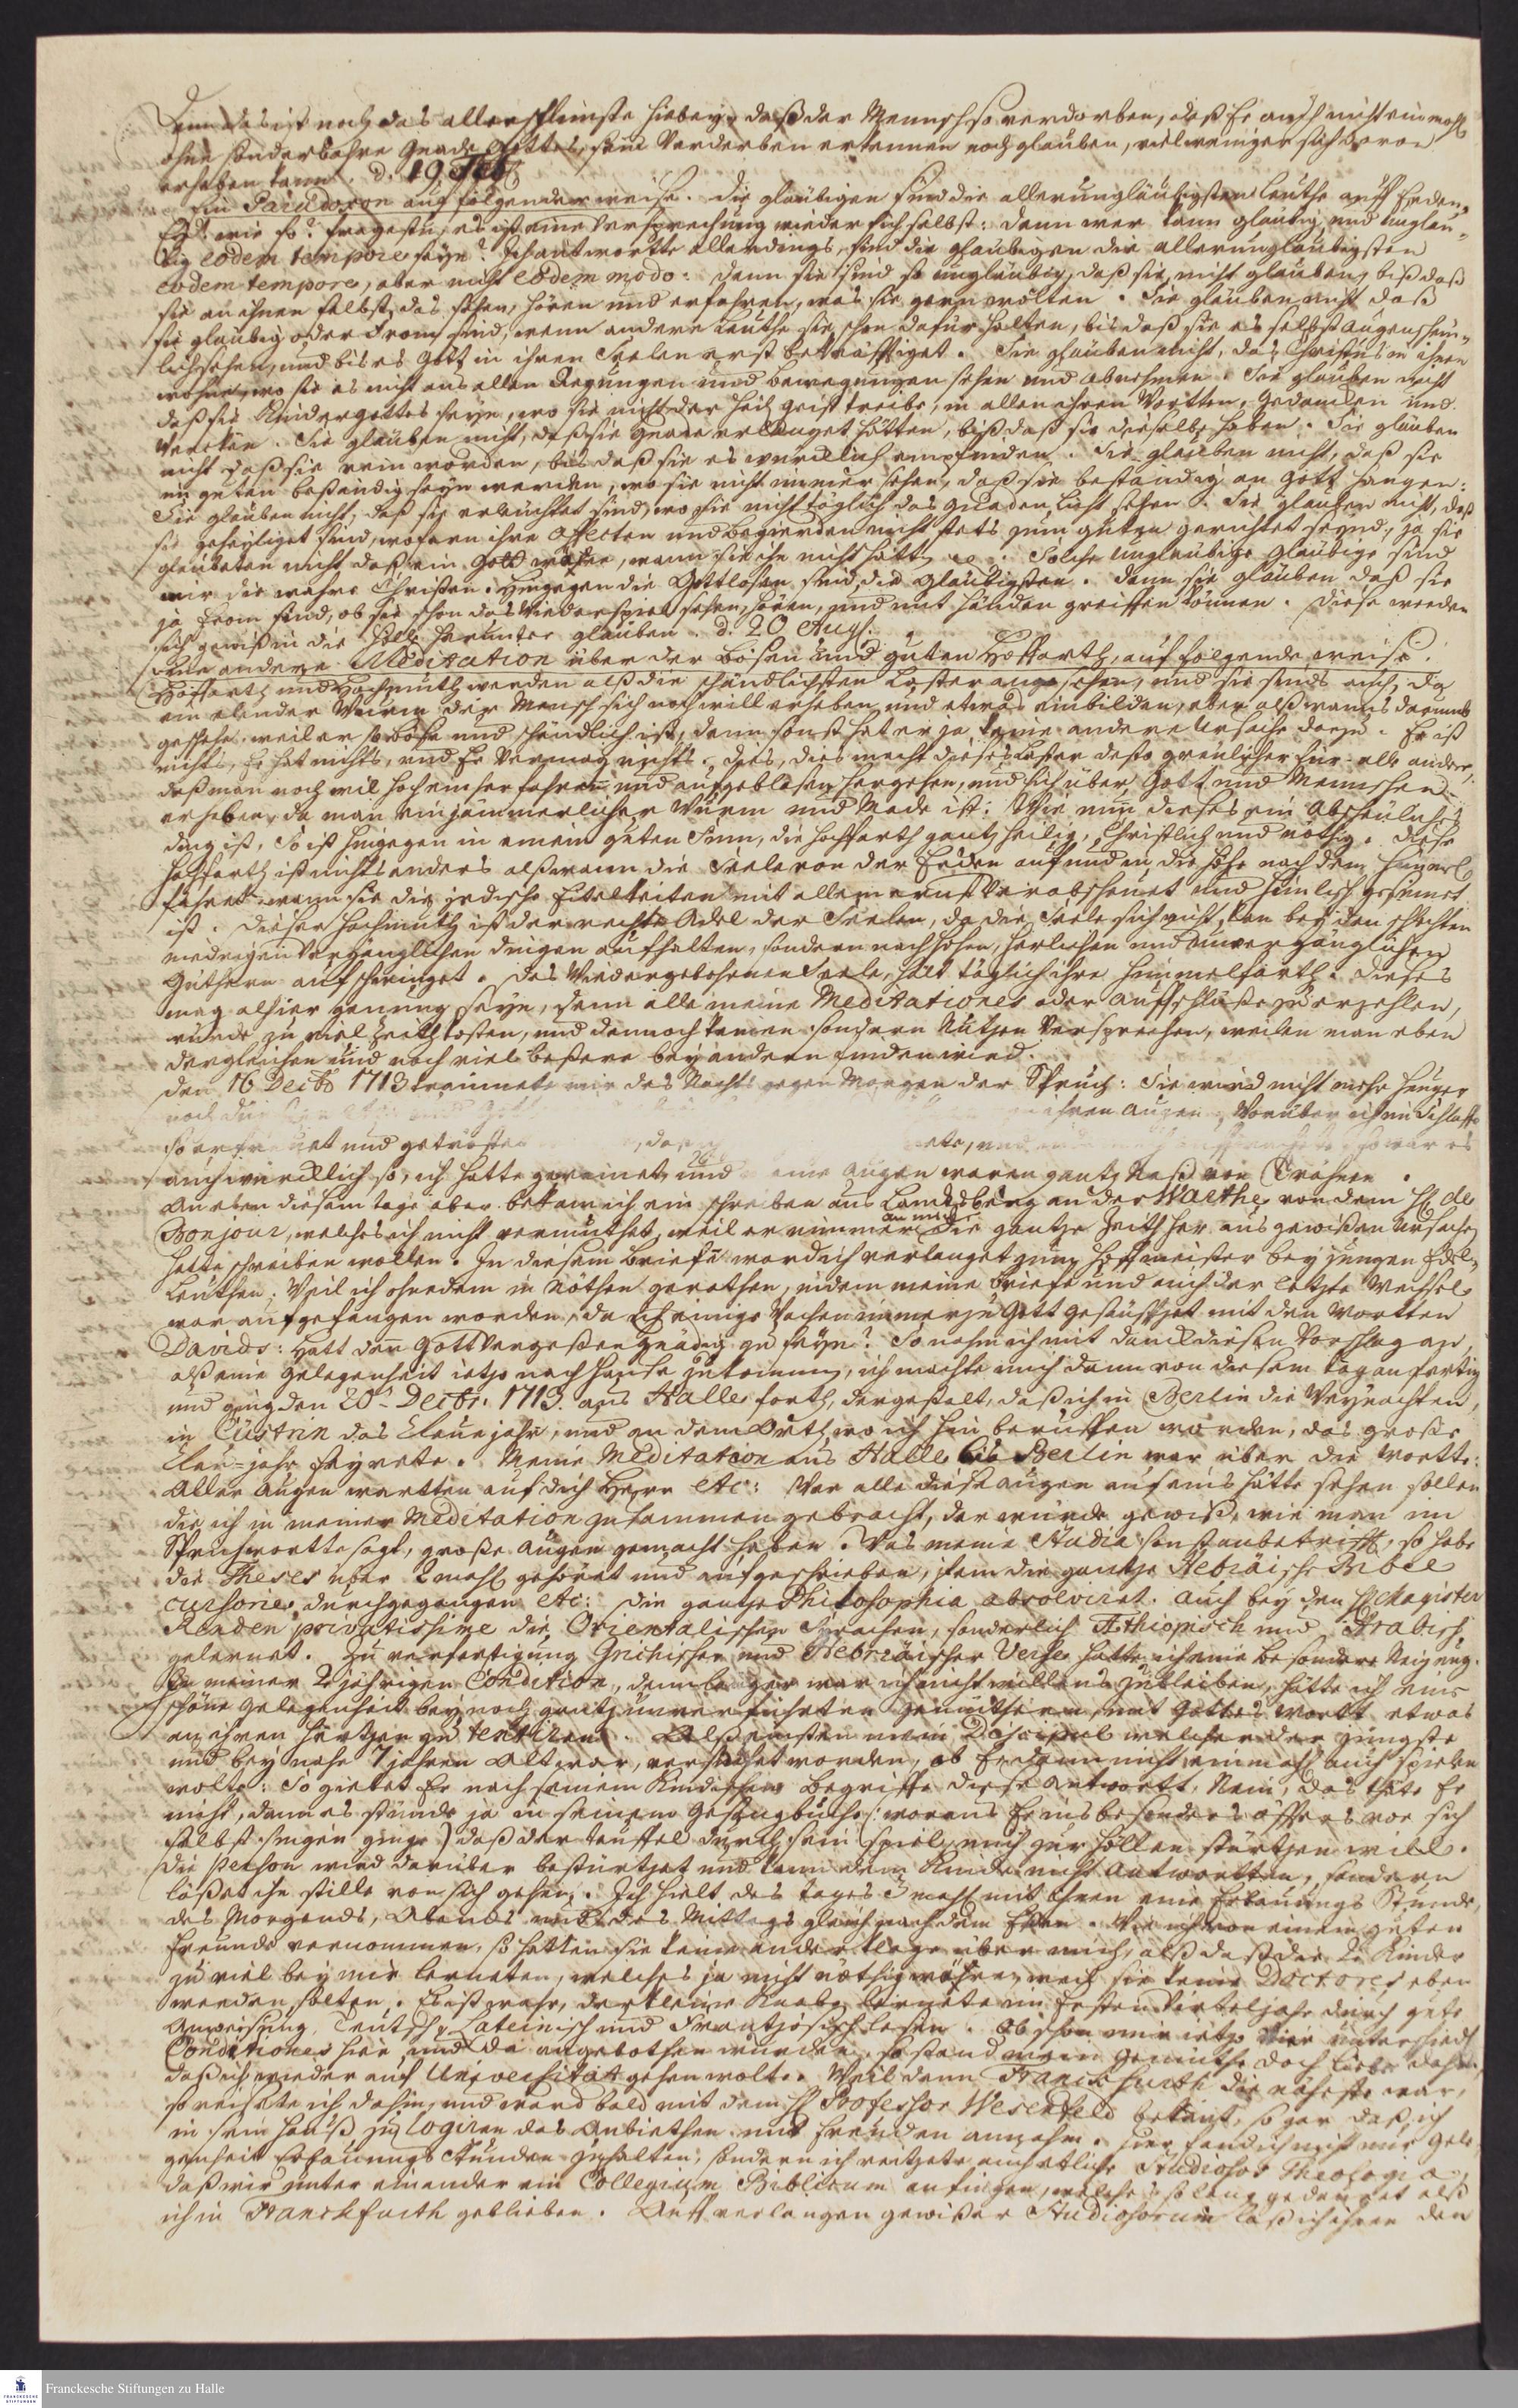 Denn das ist noch das allerschlimste hiebey, daß der Mensch so verdorben, daß Er auch nicht einmahl
ohne sonderbahre Gnade Gottes, sein Verderben erkennen noch glauben, viel weniger sich davon
erheben kann. d. 19 Feb
Ein Paradoxon auf folgender weise. Die gläubigen sind die allerungläubigsten Leuthe auff Erden.
wie so? fragestu, es ist eine Versprechung wieder sich selbst: denn wer kann gläubig und ungläu-
big eodem tempore seyn? Ich antwortte allerdings, sind die gläubigen die allerungläubigsten
eodem tempore, aber nicht eodem modo: dann sie sind so ungläubig, daß sie nicht glauben, biß daß
sie an ihnen selbst das sehen, hören und erfahren, was sie gern wolten. Sie glauben nicht daß
sie gläubig oder from sind, wenn andere Leuthe sie schon dafür halten, bis daß sie es selbst augenschein-
lich sehen, und bis es Gott in ihren Seelen erst bekräfftiget. Sie glauben nicht, daß Christus in ihnen
wohne, wo sie es nicht aus allen Regungen und bewegungen sehen und abnehmen. Sie glauben nicht
daß sie Kinder gottes seyn, wo sie nicht der heil. geist treibe, in allen ihren Wortten, Gedancken und
Wercken. Sie glauben nicht, daß sie Gnade erlanget hätten, biß daß sie dieselbe haben. Sie glauben
nicht daß sie rein worden, bis daß sie es würcklich empfinden. Sie glauben nicht, daß sie
im guten beständig seyn werden, wo sie nicht immer sehen, daß sie beständig an Gott hangen:
Sie glauben nicht, daß sie erleuchtet sind, wo sie nicht täglich das Gnaden Licht sehen. Sie glauben nicht, daß
sie geheiliget sind, wofern ihre Affecten und begierden nicht stets zum guten gerichtet seynd, ja sie
glaubeten nicht daß ein Gott wäre, wann sie ihn nicht hätten. Solche ungläubige gläubige sind
nur die wahre Christen. Hingegen die Gottlosen sind die gläubigsten. Dann sie glauben daß sie
ja from sind, ob sie schon das Wiederspiel sehen, hören, und mit händen greiffen können. Diese werden
sich gewiß in die Hölle herunter glauben. d. 20 Aug.
Eine andere Meditation über der bösen und guten Hoffarth, auf folgende weise.
Hoffarth und Hochmuth werden alß die schändlichsten Laster angesehen, und sie sinds auch, da
ein elender Wurm der Mensch sich noch will erheben und etwas einbilden, eben alß wanns darumb
geschehe, weil er so böse und schändlich ist, dann sonst hat er ja keine andere Ursache dazu. Er ist
nichts, Er hat nichts, und Er vermag nichts. Dies, dies macht dieses Laster desto greulicher für alle andere,
daß man noch wil hoch einherfahren und aufgeblasen hergehen, und sich über Gott und Menschen
erheben, da man ein jämmerlicher Wurm und Made ist: Wie nun dieses ein abscheuliches
ding ist, So ist hingegen in einem guten Sinn, die hoffarth gantz heilig, Christlich und nöthig. Diese
hoffarth ist nichts anders alß wann die Seele von der Erden auf und in die höhe nach dem himmel
fähret, wann sie die irdische Eitelkeiten mit allem ernst verabscheuet und himlisch gesinnet
ist. Dieser Hochmuth ist der rechte Adel der Seelen, da die Seele sich nicht kan bey den schlechten
niedrigen vergänglichen dingen aufhalten, sondern nach hohen, herlichen und unvergänglichen
Güthern aufschwinget. Des Wiedergebohrnen Seele, hält täglich ihre Himmelfarth. Dieses
mag alhier genung seyn, denn alle meine Meditationes oder auffschlüße zu erzehlen,
würde zu viel Zeith kosten, und dennoch keinen sondern Nutzen versprechen, weilen man eben
dergleichen und noch viel beßere bey andern finden wird.
Den 16 Decbr 1713 träumete mir des Nachts gegen Morgen der Spruch: Sie wird nicht mehr hungern
noch dür ihren augen, Worüber ich im Schlaffe
so erfreuet und getröstet so war es
auch würcklich so, ich hatte geweinet, und meine augen waren gantz naß von Thränen.
An eben diesem tage aber bekam ich ein schreiben aus Landsberg an der Warthe, von dem H. de
Bonjour, welches ich nicht vermuthet, weil er nimmer an mich die gantze Zeith her aus gewißen Ursachen
hatte schreiben wollen. In diesem briefe ward ich verlanget zum Hoffmeister bey jungen Edel-
Leuthen. Weil ich ohnedem in Nöthen gerathen, indem meine briefe und auch der letzte Wechsel
war aufgefangen worden, da ich einige Wochen immer zu Gott geseuffzet mit den Wortten
Davids: Hatt den Gott vergeßen gnädig zu seyn? So nahm ich mit danck diesen Vorschlag an,
alß eine gelegenheit ietzo nach hause zukommen, ich machte mich dann von diesem tag an fertig
und ging den 20 Decbr. 1713. aus Halle forth, dergestalt, daß ich in Berlin die Weynachten,
in Cüstrin das Neue jahr, und an dem Orth, wo ich hin beruffen worden, das große
Neu-jahr feyrete. Meine Meditation aus Halle bis Berlin war über die wortte:
Aller Augen wartten auf dich Herr etc: Wer alle diese augen auf eins hätte sehen sollen
die ich in meiner Meditation zusammen gebracht, der würde gewiß, wie man im
Sprichwortte sagt, große augen gemacht haben. Was meine Studia sonst anbetrifft, so habe
die Theses über 2 mahl gehöret und aufgeschrieben, item die gantze Hebräische Bibel
cursorie durchgegangen etc: die gantze Philosophia absolviret. Auch bey den H. Magister
Renden privatissime die Orientalischen Sprachen, sonderlich Æthiopisch und Arabisch
gelernet. Zu verfertigung Grichischer und Hebräischer Verse hatte ich eine besondere Neigung.
In meiner 2 jährigen Condition, denn länger war ich nicht willens zubleiben, hatte ich eine
schöne gelegenheit bey noch gantz unverführeten gemüthern mit Gottes wortt etwas
an ihren hertzen zu tentiren. Alß einsten mein Discipul welcher der jüngste
und bey nahe 7 jahren alt war, versuchet worden, ob Er dann nicht einmahl auch spielen
wolte: So giebet Er nach seinem Kindischen begriffe diese Antwortt. Nein, das thäte Er
nicht, dann es stünde ja in seinem Gesangbuche (: woraus Er ins besonders öffters vor sich
selbst singen ginge) daß der teuffel durch sein spiel mich zur höllen stürtzen will.
Die Person wird darüber bestürtzet und kann dem Kinde nicht antwortten, sondern
läßet ihn stille von sich gehen. Ich hielt des tages 3 mahl mit ihnen eine Erbauungs Stunde,
des Morgends, Abends und des Mittags gleich nach dem Eßen. Wie ich von einem guten
Freunde vernommen, so hatten sie keine andere klage über mich, alß daß die 2 Kinder
zu viel bey mir lerneten, welches ja nicht nöthig wäre, weil sie keine Doctores eben
werden solten. Es ist wahr, der kleine Knabe lernete im ersten Vierteljahr durch gute
Anweisung, Teutsch, Lateinisch und Frantzösisch lesen. Ob schon mir ietzo vier unterschiedl.
Conditiones hier und da angebothen wurden, so stand mein Gemüthe doch lieber dahin,
daß ich wieder auf Universität gehen wolte. Weil denn Franckfurth die näheste war,
so reisete ich dahin, und ward bald mit dem H. Professor Wesenfeld bekant, so gar daß ich
in sein hauß zu logiren das Anbiethen mit freuden annahm. Hier fand ich nicht nur gele-
genheit Erbauungs Stunden zuhalten, sondern ich reitzete auch etliche Studiosos Theologiæ,
daß wir unter einander ein Collegium Biblicum anfingen, welches so lang gedauret alß
ich in Franckfurth geblieben. Auff verlangen gewißer Studiosorum laß ich ihnen den
Franckesche Stiftungen zu Halle